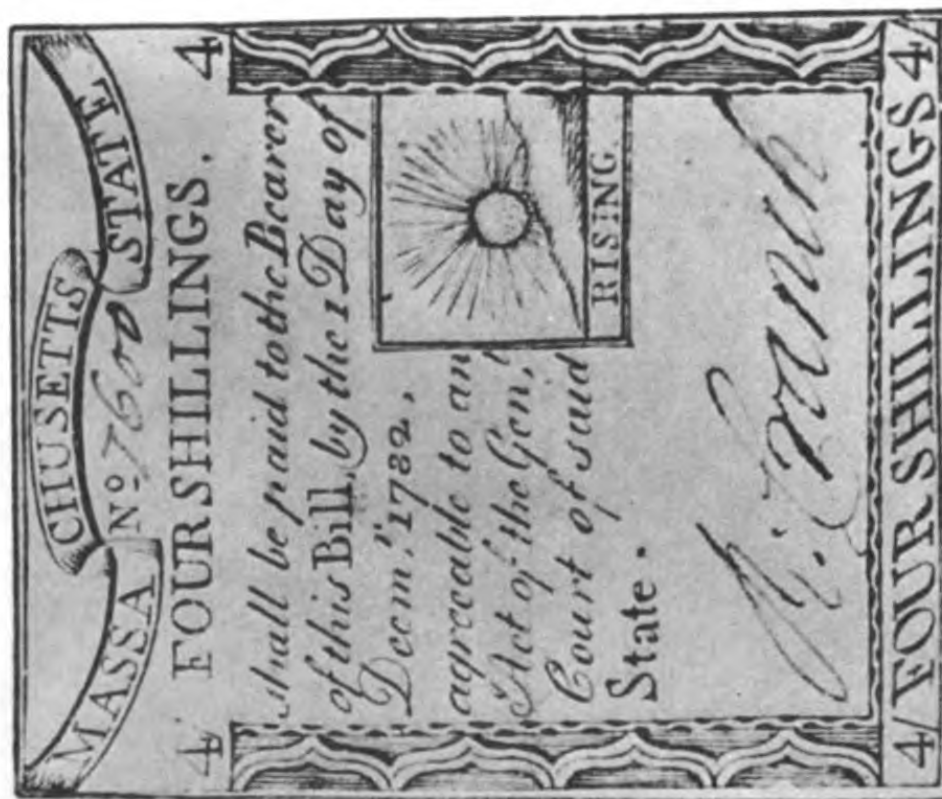 MASSA CHUSETTS STATE
Nº 7600
4 FOUR SHILLINGS. 4
shall be paid to the Bearer
of this Bill, by the 1 Day of
Decm.ʳ 1782,
agreeable to an
Act of the Gen,ˡ
Court of said
State.
RISING
4/ FOUR SHILLINGS 4/